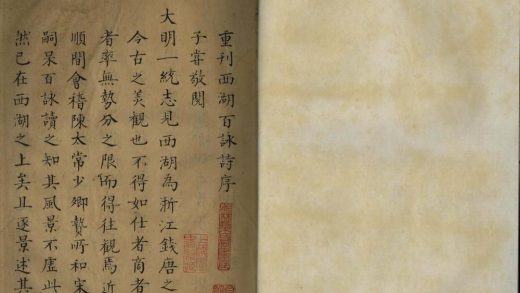 重刊西湖百詠詩序
子嘗敬閱
大明一統志見西湖為浙江錢唐之
今古之美觀也不得如仕者商者
者率無勢分之限而得往觀焉近
順間會稽陳太常少卿贄所和宋
嗣杲百詠讀之知其風景不虛此
然已在西湖之上矣且逐景述其